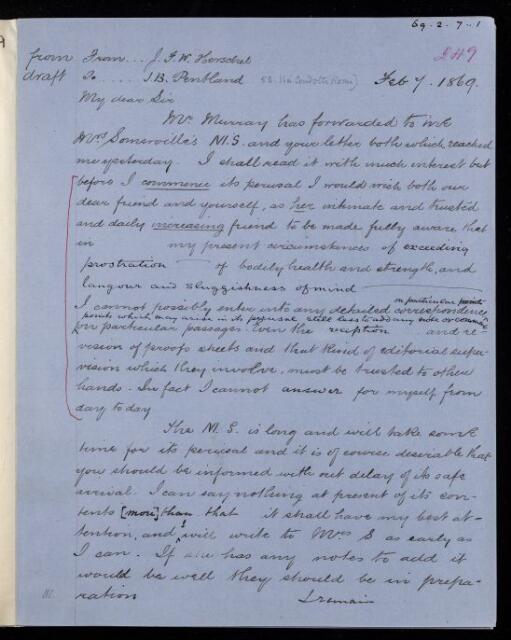 69-2-7-1
249
from From... J. F. W. Herschel
draft To..... J. B. Pentland
Feb 7. 1869.
My dear Sir
Mr. Murray has forwarded to me
Mrs Somerville's M.S. and your letter both which reached
me yesterday. I shall read it with much interest but
before I commence its perusal I would wish both our
dear friend and yourself, as her intimate and trusted
and daily increasing friend to be made fully aware that
in my present circumstances of exceeding
prostration of bodily health and strength, and
langour and sluggishness of mind
I cannot possibly enter into any detailed correspondence
on particular points
points which may arise in its perusal still less to add any note or
on particular passages. Even the reception and re-
vision of proofs sheets and that kind of editorial super-
vision which they involve, must be trusted to other
hands. In fact I cannot answer for myself from
day to day
The M.S. is long and will take some
time for its perusal and it is of course desirable that
you should be informed with out delay of its safe
arrival. I can say nothing at present of its con-
tents [more] than that it shall have my best at-
tention, and I will write to Mrs S as early as
I can. If she has any notes to add it
would be well they should be in prepa-
ration
I remain